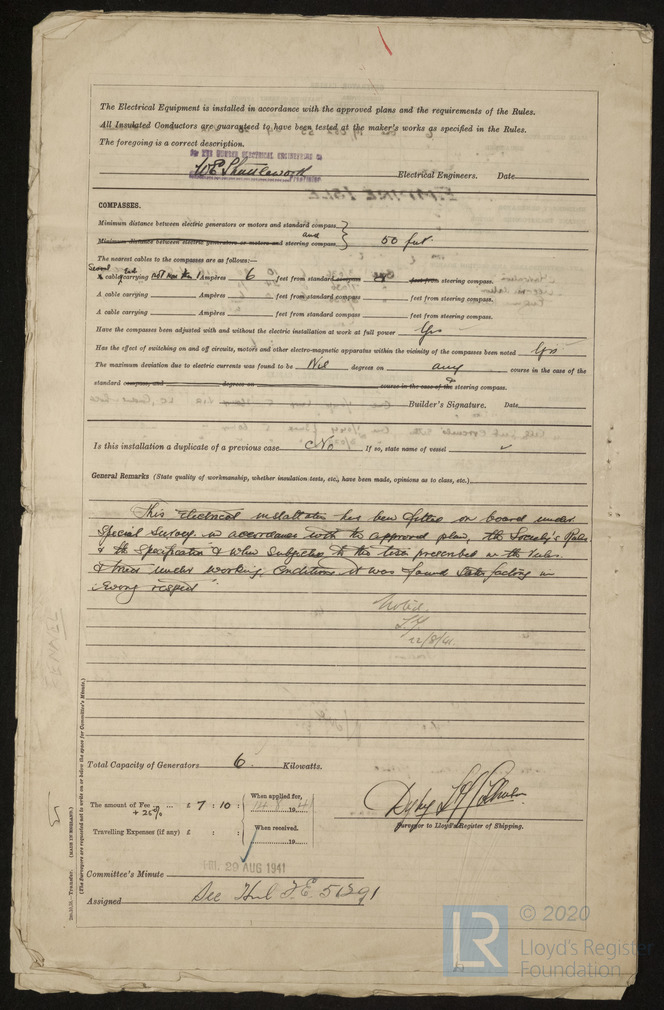 The Electrical Equipment is installed in accordance with the approved plans and the requirements of the Rules.
All Insulated Conductors are guaranteed to have been tested at the maker's works as specified in the Rules.
The foregoing is a correct description.
FOR THE HUMBER ELECTRICAL ENGINEERING Co
W E Shuttleworth Electrical Engineers. Date
COMPASSES.
Minimum distance between electric generators or motors and standard compass
and
Minimum distance between electric generators or motors and steering compass 50 feet
The nearest cables to the compasses are as follows:—
Several
A cable carrying not more than 1 Ampères 6 feet from standard compass or feet from steering compass.
A cable carrying Ampères feet from standard compass feet from steering compass.
A cable carrying Ampères feet from standard compass feet from steering compass.
Have the compasses been adjusted with and without the electric installation at work at full power Yes
Has the effect of switching on and off circuits, motors and other electro-magnetic apparatus within the vicinity of the compasses been noted Yes
The maximum deviation due to electric currents was found to be Nil degrees on any course in the case of the
standard compass, and degrees on course in the case of the steering compass.
Builder's Signature. Date
Is this installation a duplicate of a previous case No If so, state name of vessel
General Remarks (State quality of workmanship, whether insulation tests, etc., have been made, opinions as to class, etc.)
This electrical installation has been fitted on board under
Special Survey in accordance with the approved plan, the Society's Rules
& the Specification & when subjected to the tests prescribed in the Rules
& tried under working conditions it was found satisfactory in
every respect
Noted
12/8/41
Total Capacity of Generators 6 Kilowatts.
The amount of Fee ... £ 7 : 10 :
+ 25%
When applied for,
14.8.1941
Travelling Expenses (if any) £ : :
When received.
19
Surveyor to Lloyd's Register of Shipping.
FRI. 29 AUG 1941
Committee's Minute
Assigned See Hul F.E. 51291
(The Surveyors are requested not to write on or below the space for Committee's Minute.)
(MADE IN ENGLAND.)
Transfer.
© 2020
LR
Lloyd's Register
Foundation